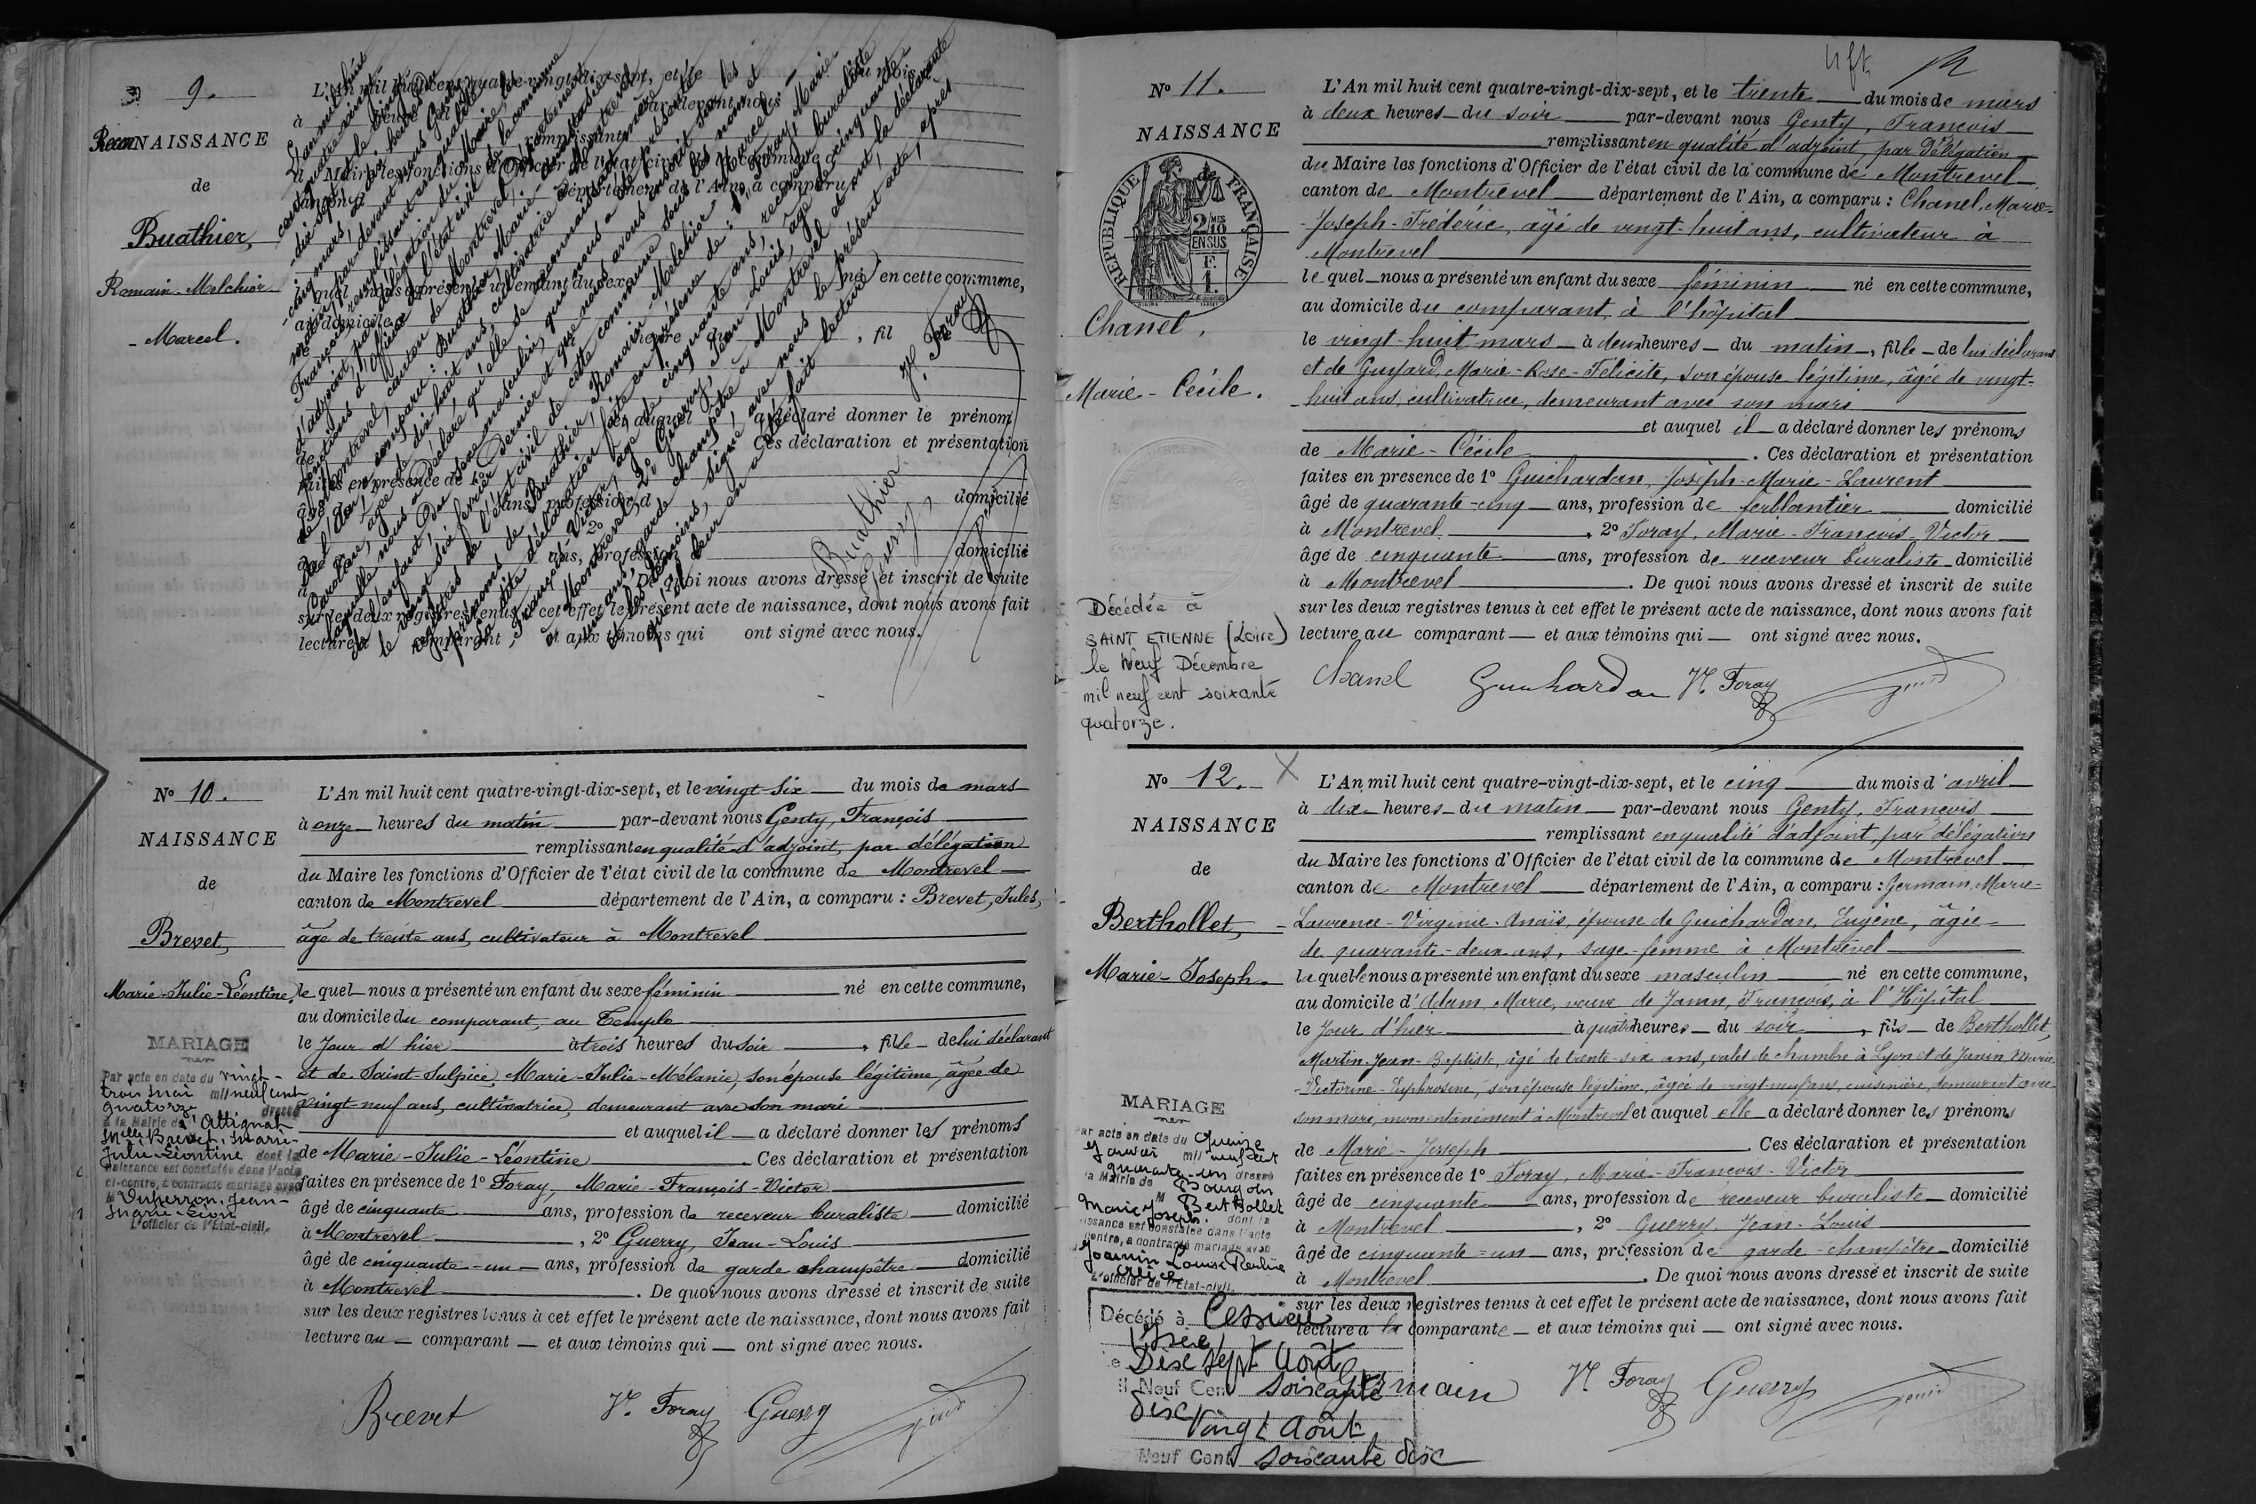 9.
Recon NAISSANCE
de
Buathier,
Romain-Melchior
- Marcel.
L'an mil huit
cent quatre-vingt-
dix-sept et le vingt-
-cinq mars, à dix heures du
matin, par-devant nous Genty
François, remplissant en qualité
d'adjoint, par délégation du Maire, les
fonctions d'Officier de l'état civil de la commune
de Montrevel, canton de Montrevel, département
de l'Ain, a comparu : Buathier Marie
âgée de dix huit ans, cultivatrice
laquelle nous a déclaré qu'elle
enfant, du sexe masculin, qui nous a été présenté
le vingt-six février dernier et que nous avons inscrit sur les
registres de l'état civil de cette commune sous les noms et
prénoms de Buathier, Romain-Melchior-Marcel
La dite déclaration faite en présence de : 1° Foray, Marie-
François-Victor, âgé de cinquante ans, receveur buraliste
à Montrevel, 2° Guerry, Jean-Louis, âgé de cinquante-
un ans, garde champêtre à Montrevel et ont la déclarante
et les témoins, signé avec nous le présent acte, après
que leur en a été fait lecture.
Buathier
Guerry
Vr. Foray
No 10.
NAISSANCE
de
Brevet,
Marie-Julie-Léontine,
L'An mil huit cent quatre-vingt-dix-sept, et le vingt-six du mois de mars
à onze heures du matin par-devant nous Genty, François
remplissant en qualité d'adjoint, par délégation
du Maire les fonctions d'Officier de l'état civil de la commune de Montrevel
canton de Montrevel département de l'Ain, a comparu : Brevet, Jules,
âgé de trente ans, cultivateur à Montrevel
le quel nous a présenté un enfant du sexe féminin né en cette commune,
au domicile du comparant, au Temple
le Jour d'hier à trois heures du soir, fille de lui déclarant
et de Saint-Sulpice, Marie-Julie-Mélanie, son épouse légitime, âgée de
vingt-neuf ans, cultivatrice, demeurant avec son mari
et auquel il a déclaré donner les prénoms
de Marie-Julie-Léontine. Ces déclaration et présentation
faites en présence de 1° Foray, Marie-François-Victor
âgé de cinquante ans, profession de receveur buraliste domicilié
à Montrevel, 2° Guerry, Jean-Louis
âgé de cinquante-un ans, profession de garde champêtre domicilié
à Montrevel. De quoi nous avons dressé et inscrit de suite
sur les deux registres tenus à cet effet le présent acte de naissance, dont nous avons fait
lecture au comparant et aux témoins qui ont signé avec nous.
MARIAGE
Par acte en date du vingt-
trois mai mil neuf cent
quatorze dressé
à la Mairie de Attignat
Melle Brevet, Marie-
Julie-Léontine dont la
naissance est constatée dans l'acte
ci-contre, a contracté mariage avec
M Duperron, Jean-
Marie-Léon
L'officier de l'Etat-civil.
Brevet Vr. Foray Guerry
No 11.
NAISSANCE
REPUBLIQUE FRANÇAISE
2/10
EN SUS
Chanel,
Marie-Cécile.
L'An mil huit cent quatre-vingt-dix-sept, et le trente du mois de mars
à deux heures du soir par-devant nous Genty, François
remplissant en qualité d'adjoint par Délégation
du Maire les fonctions d'Officier de l'état civil de la commune de Montrevel
canton de Montrevel département de l'Ain, a comparu : Chanel, Marie-
-Joseph-Fréderic, âgé de vingt-huit ans, cultivateur à
Montrevel
le quel nous a présenté un enfant du sexe féminin né en cette commune,
au domicile du comparant, à l'hôpital
le vingt-huit mars à deux heures du matin, fille de lui déclarant
et de Guyard, Marie-Rose-Félicité, son épouse légitime, âgée de vingt-
huit ans, cultivatrice, demeurant avec son mari
et auquel il a déclaré donner les prénoms
de Marie-Cécile. Ces déclaration et présentation
faites en presence de 1° Guichardan, Joseph-Marie-Laurent
âgé de quarante-cinq ans, profession de ferblantier domicilié
à Montrevel, 2° Foray, Marie-François-Victor
âgé de cinquante ans, profession de receveur buraliste domicilié
à Montrevel. De quoi nous avons dressé et inscrit de suite
sur les deux registres tenus à cet effet le présent acte de naissance, dont nous avons fait
lecture au comparant et aux témoins qui ont signé avec nous.
Décédée à
SAINT ETIENNE (Loire)
le Neuf Décembre
mil neuf cent soixante
quatorze.
Chanel Guichardan Vr. Foray
No 12.
NAISSANCE
de
Berthollet,
Marie-Joseph.
L'An mil huit cent quatre-vingt-dix-sept, et le cinq du mois d'avril
à dix heures du matin par-devant nous Genty, François
remplissant en qualité d'adjoint, par délégation
du Maire les fonctions d'Officier de l'état civil de la commune de Montrevel
canton de Montrevel département de l'Ain, a comparu : Germain, Marie-
-Laurence-Virginie-Anaïs, épouse de Guichardan, Eugène, âgée
de quarante-deux ans, sage-femme à Montrevel
la quelle nous a présenté un enfant du sexe masculin né en cette commune,
au domicile d'Adam, Marie, veuve de Janin, François, à l'Hôpital
le Jour d'hier à quatre heures du soir, fils de Berthollet,
Martin-Jean-Baptiste, âgé de trente-six ans, valet de chambre à Lyon et de Janin Marie-
-Victorine-Euphrosine, son épouse légitime, âgée de vingt-neuf ans, cuisinière, demeurant avec
son mari, momentanément à Montrevel et auquel elle a déclaré donner les prénoms
de Marie-Joseph. Ces déclaration et présentation
faites en présence de 1° Foray, Marie-François-Victor
âgé de cinquante ans, profession de receveur buraliste domicilié
à Montrevel, 2° Guerry, Jean-Louis
âgé de cinquante-un ans, profession de garde-champêtre domicilié
à Montrevel. De quoi nous avons dressé et inscrit de suite
sur les deux registres tenus à cet effet le présent acte de naissance, dont nous avons fait
lecture à la comparante et aux témoins qui ont signé avec nous.
MARIAGE
Par acte en date du Quinze
Janvier mil neuf cent
quarante-un dressé
à la Mairie de Bourgoin
M Berthollet
Marie Joseph. dont la
naissance est constatée dans l'acte
contre, a contracté mariage avec
Joannin Louise Pauline
L'officier de l'Etat-civil.
Décédé à Cessieu
Isère
le Dix sept Août
il Neuf Cent soixante
dix
Vingt Août
Neuf Cent soixante dix
Germain Vr Foray Guerry